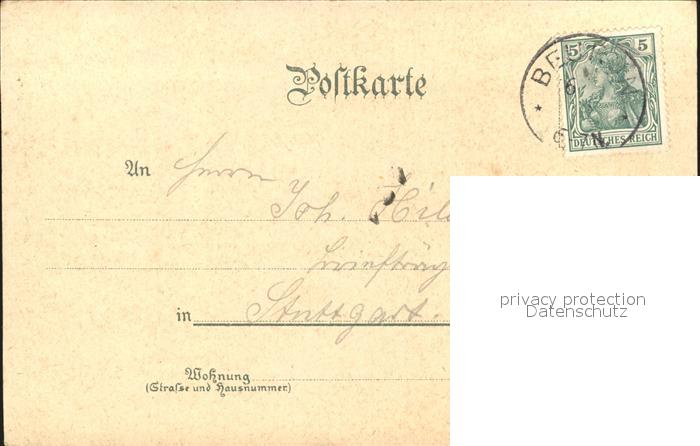 Postkarte
5 5
DEUTSCHES REICH
An Herrn
Joh. Hil
Briefträg
in Stuttgart.
Wohnung
(Strasse und Hausnummer)
privacy protection
Datenschutz